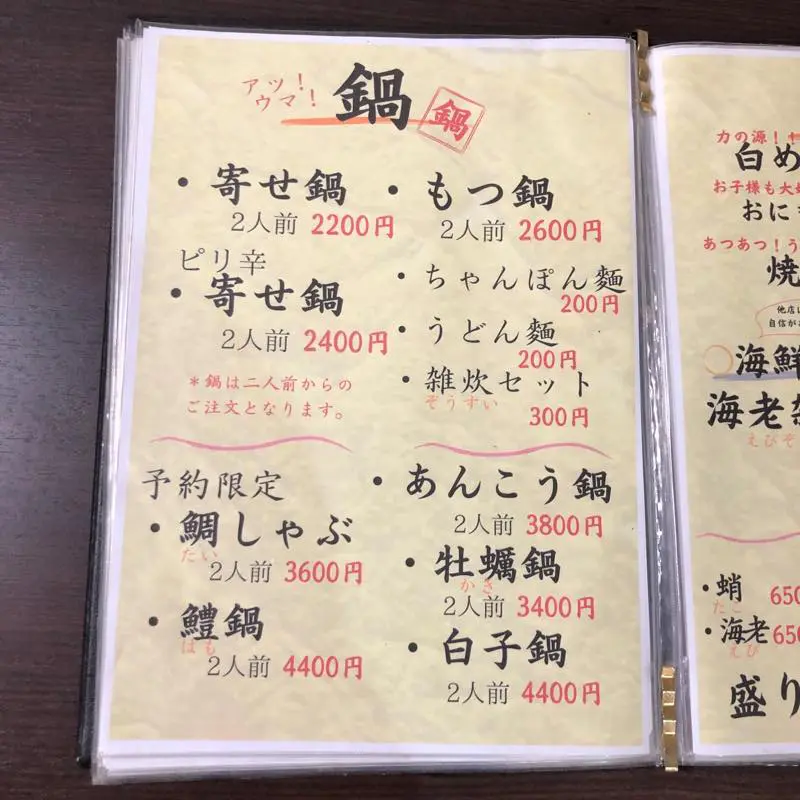 アツ！
ウマ！
鍋
鍋
・寄せ鍋
2人前 2200円
ピリ辛
・寄せ鍋
2人前 2400円
＊鍋は二人前からの
ご注文となります。
・もつ鍋
2人前 2600円
・ちゃんぽん麺
200円
・うどん麺
200円
・雑炊セット
ぞうすい
300円
予約限定
・鯛しゃぶ
たい
2人前 3600円
・鱧鍋
はも
2人前 4400円
・あんこう鍋
2人前 3800円
・牡蠣鍋
かき
2人前 3400円
・白子鍋
2人前 4400円
力の源！
白め
お子様も大
おに
あつあつ！う
焼
他店
自信が
海鮮
海老
えびぞ
・蛸
たこ
650
・海老
えび
650
盛り